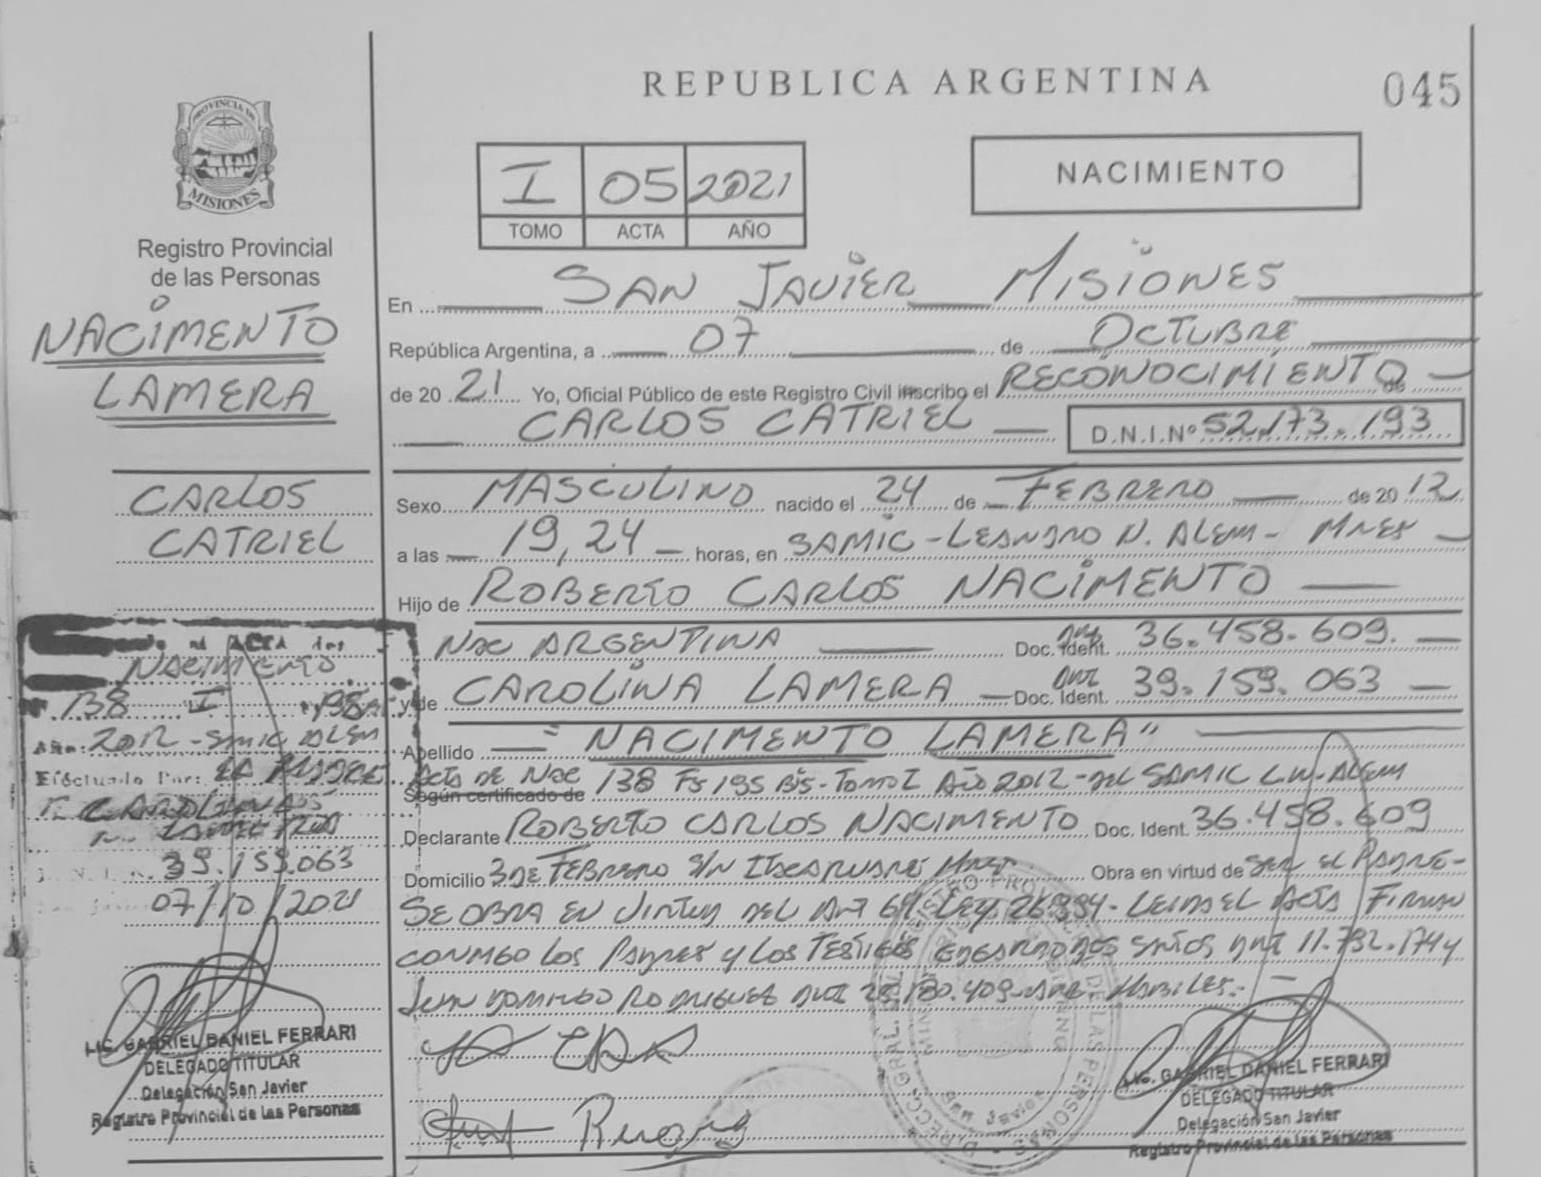 REPUBLICA ARGENTINA
045
PROVINCIA DE
MISIONES
Registro Provincial
de las Personas
NACIMENTO
LAMERA
CARLOS
CATRIEL
I 05 2021
TOMO ACTA AÑO
NACIMIENTO
En SAN JAVIER MISIONES
República Argentina, a 07 de OCTUBRE
de 20 21 Yo, Oficial Público de este Registro Civil inscribo el RECONOCIMIENTO de
CARLOS CATRIEL D.N.I.Nº 52.173.193
Sexo MASCULINO nacido el 24 de FEBRERO de 20 12
a las 19,24 horas, en SAMIC - LEANDRO N. ALEM - MNES
Hijo de ROBERTO CARLOS NACIMENTO
NAC ARGENTINA Doc. Ident. DNI 36.458.609.
y de CAROLINA LAMERA Doc. Ident. DNI 39.159.063
Apellido "NACIMENTO LAMERA"
ACTA DE NAC
Según certificado de 138 Fs 195 Bis - TOMO I AÑO 2012 - DEL SAMIC L.N. ALEM
Declarante ROBERTO CARLOS NACIMENTO Doc. Ident. 36.458.609
Domicilio 3 DE FEBRERO S/N Obra en virtud de SER EL PADRE -
SE OBRA EN VIRTUD DEL ART 64 LEY 26.994 - LEIDA EL ACTA FIRMAN
CONMIGO LOS PADRES Y LOS TESTIGOS DNI 11.732.174 Y
JUAN DOMINGO RODRIGUEZ DNI HABILES. -
ACTA
NACIMIENTO
138 I
Año: 2012 - SAMIC ALEM
Efectuado Por: LA MADRE
39.159.063
07/10/2021
LIC. GABRIEL DANIEL FERRARI
DELEGADO TITULAR
Delegación San Javier
Registro Provincial de las Personas
LIC. GABRIEL DANIEL FERRARI
DELEGADO TITULAR
Delegación San Javier
Registro Provincial de las Personas
San Javier